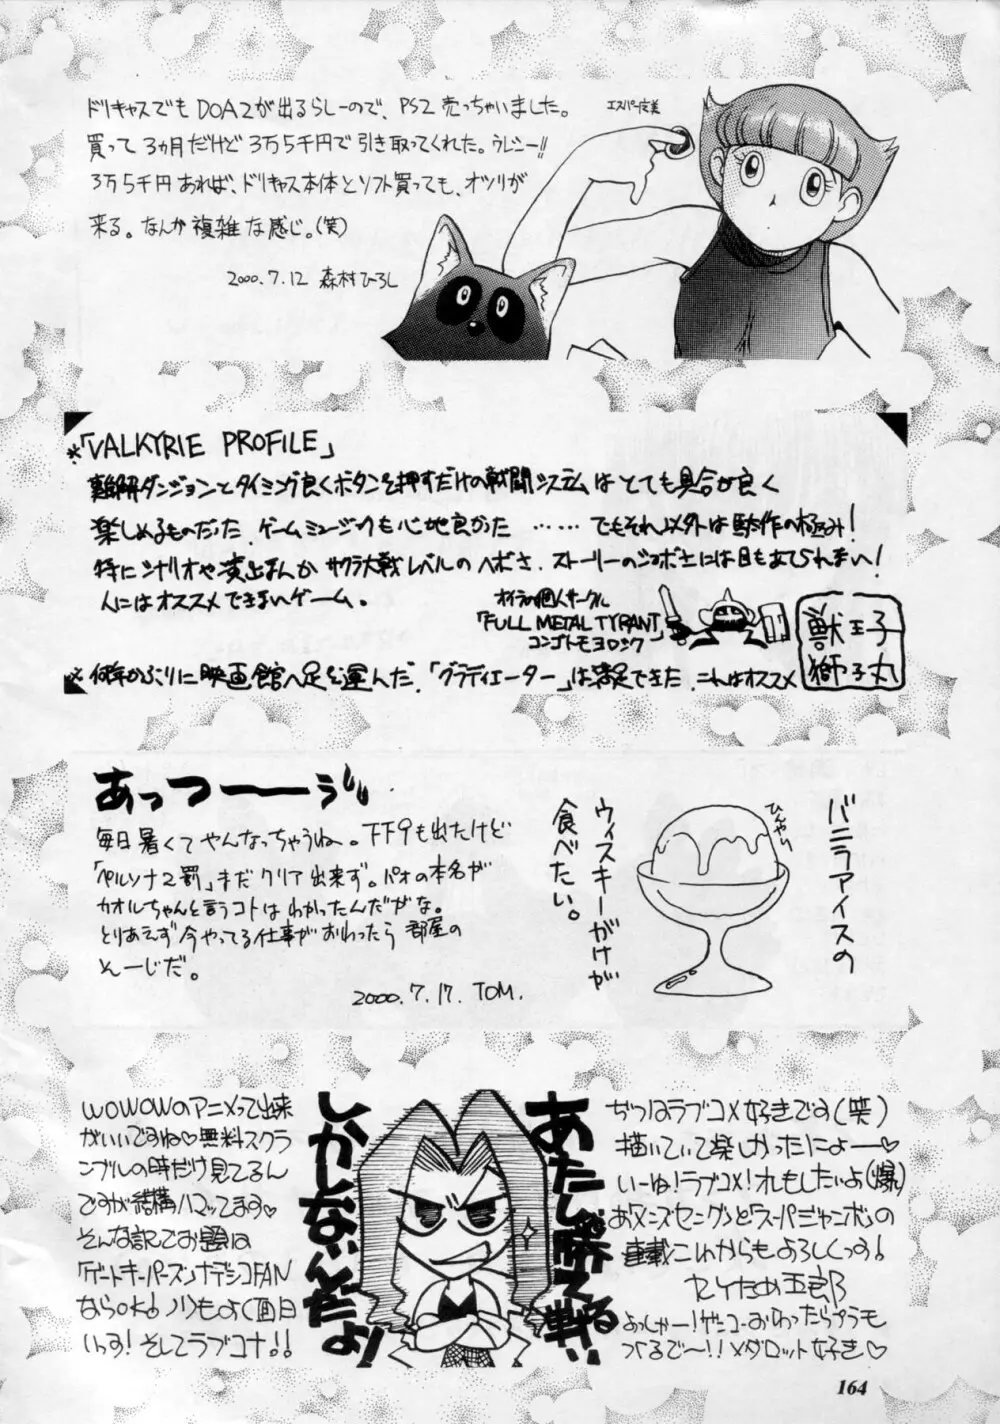 ドリキャスでもDOA2が出るらしーので、PS2売っちゃいました。
買って3カ月だけど3万5千円で引き取ってくれた。ウレシー!!
3万5千円あれば、ドリキャス本体とソフト買っても、オツリが
来る。なんか複雑な感じ。(笑)
2000.7.12 森村ひろし
エスパー定美
※「VALKYRIE PROFILE」
難解ダンジョンとタイミング良くボタンを押すだけの戦闘システムはとても具合が良く
楽しめるものだった。ゲームミュージックも心地良かった……でもそれ以外は駄作の極み!
特にシナリオや演出なんかサクラ大戦レベルのヘボさ、ストーリーのショボさには目もあてられない!
人にはオススメできないゲーム。
オイラの個人サークル
「FULL METAL TYRANT」
コンゴトモヨロシク
獣王子
獅子丸
※何年かぶりに映画館へ足を運んだ。「グラディエーター」は満足できた。これはオススメ
あっつーーぅ
毎日暑くてやんなっちゃうね。FF9も出たけど
「ペルソナ2罰」まだクリア出来ず。パオの本名が
カオルちゃんと言うコトはわかったんだがな。
とりあえず今やってる仕事がおわったら部屋の
そーじだ。
2000.7.17. TOM.
バニラアイスの
ウィスキーがけが
食べたい。
ひんやり
ぢつはラブコメ好きです(笑)
描いていて楽しかったにょー♡
いーね!ラブコメ!オレもしたいよ(爆)
連載これからもよろしくっす!
よっしゃー!ゲンコーおわったらプラモ
つくるでー!!メダロット好き♡
あたし勝てる戦い
しかしないんだよ!
WOWOWのアニメって出来
がいいですね♡無料スクラ
ンブルの時だけ見てるん
ですが結構ハマってます♡
そんな訳でお題は
「ゲートキーパーズ」ナデシコFAN
ならOK!ノリもよく面白
いっす!そしてラブコナ!!
164